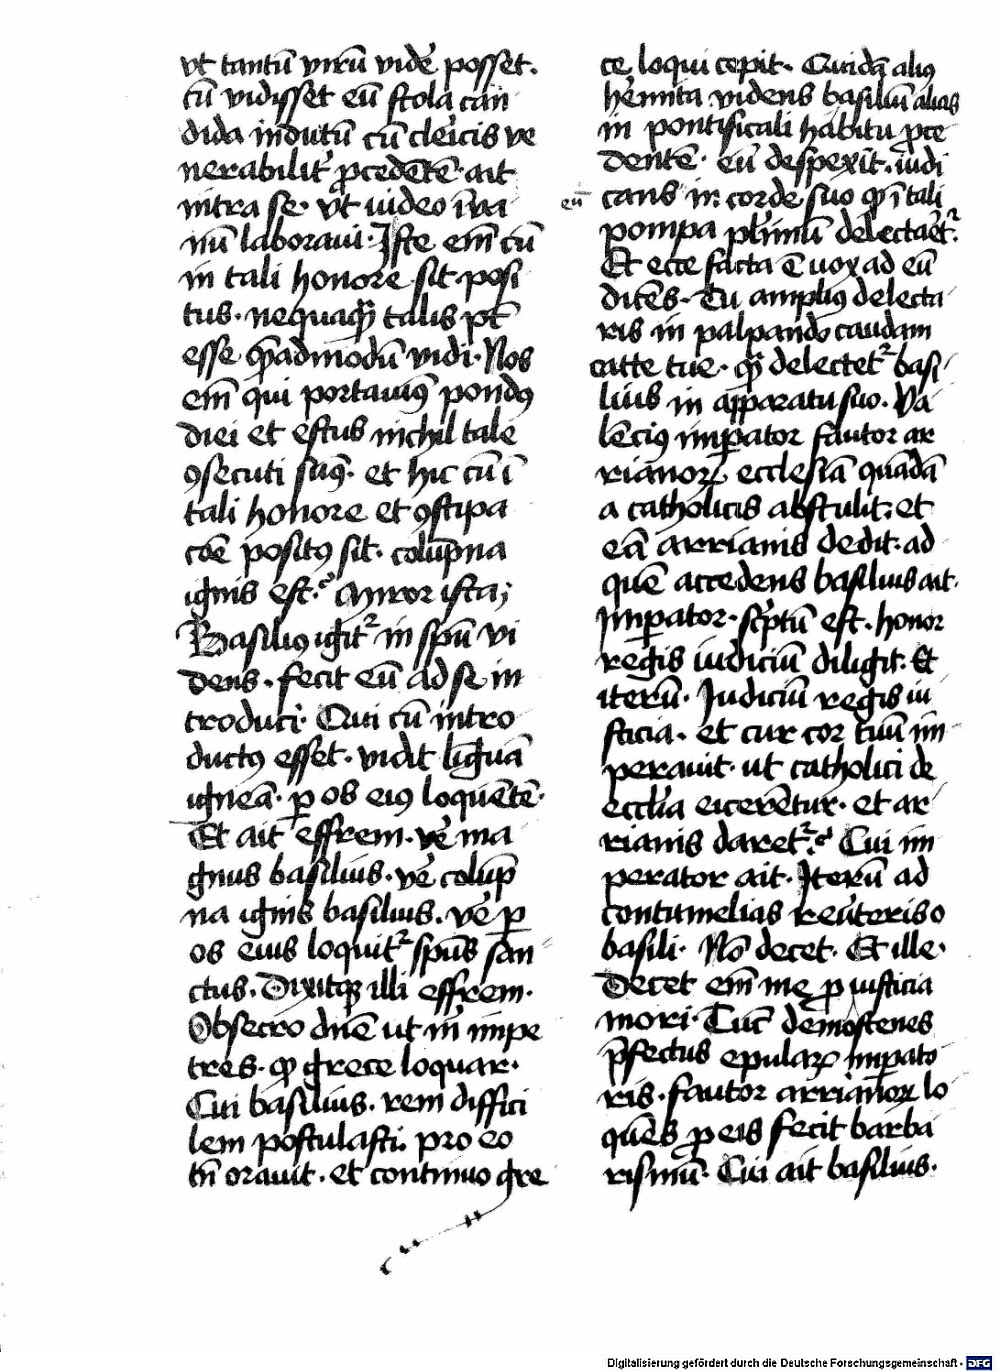 vt tantū virū vidē posset.
cū vidisset eū stola can
dida indutū cū clericis ve
nerabilit᷑ ꝓcedētē. ait
intra se. vt video ī va
nū laboraui. Iste em̄ cū
in tali honore sit posi
tus. nequaqꝫ talis pt̄
esse qꝫadmodū vidi. Nos
em̄ qui portauimꝯ pondꝯ
diei et estus nichil tale
ꝯsecuti sumꝯ. et hic cū ī
tali honore et ꝯstipa
cōe positꝯ sit. columpna
ignis est. Miror ista;
Basiliꝯ igit᷑ in spū vi
dens. fecit eū ad se in
troduci. Qui cū intro
ductꝯ esset. vidit liguā
igneā. ꝑ os eiꝯ loquētē.
Et ait effrem. ve᷑ ma
gnus basilius. ve᷑ colūp
na ignis basilius. ve᷑ ꝑ
os eius loquit᷑ spūs san
ctus. Dixitqꝫ illi effrem.
Obsecro dn̄e ut m̄ impe
tres. ꝙ grece loquar.
Cui basilius. rem diffici
lem postulasti. pro eo
tn̄ orauit. et continuo gre
ce loqui cepit. Quidā aliꝯ
he᷑mita videns basiliū alias
in pontificali habitu ꝓce
dentē. eū despexit. iudi
eū cans in corde suo ꝙ ī tali
pompa plimū delectaret᷑.
Et ecce facta ē vox ad eū
dicēs. Tu ampliꝯ delecta
ris in palpando caudam
catte tue. qꝫ delectet᷑ basi
lius in apparatu suo. Va
lēciꝯ imꝑator fautor ar
rianoꝝ ecclesiā quādā
a catholicis abstulit. et
eā arrianis dedit. ad
quē accedens basilius ait.
Imꝑator. sc᷑ptū est. honor
regis iudiciū diligit. Et
iterū. Iudiciū regis iu
sticia. et cur cor tuū im
perauit. ut catholici de
ecclīa eicerētur. et ar
rianis daret᷑. Cui im
perator ait. Iterū ad
contumelias reuteris o
basili. Nō decet. Et ille.
Decet em̄ me ꝑ iusticia
mori. Tūc demostenes
p̄fectus epulaꝝ imꝑato
ris. fautor arrianoꝝ lo
quēs ꝓ eis fecit barba
rismū. Cui ait basilius.
Digitalisierung gefördert durch die Deutsche Forschungsgemeinschaft - DFG